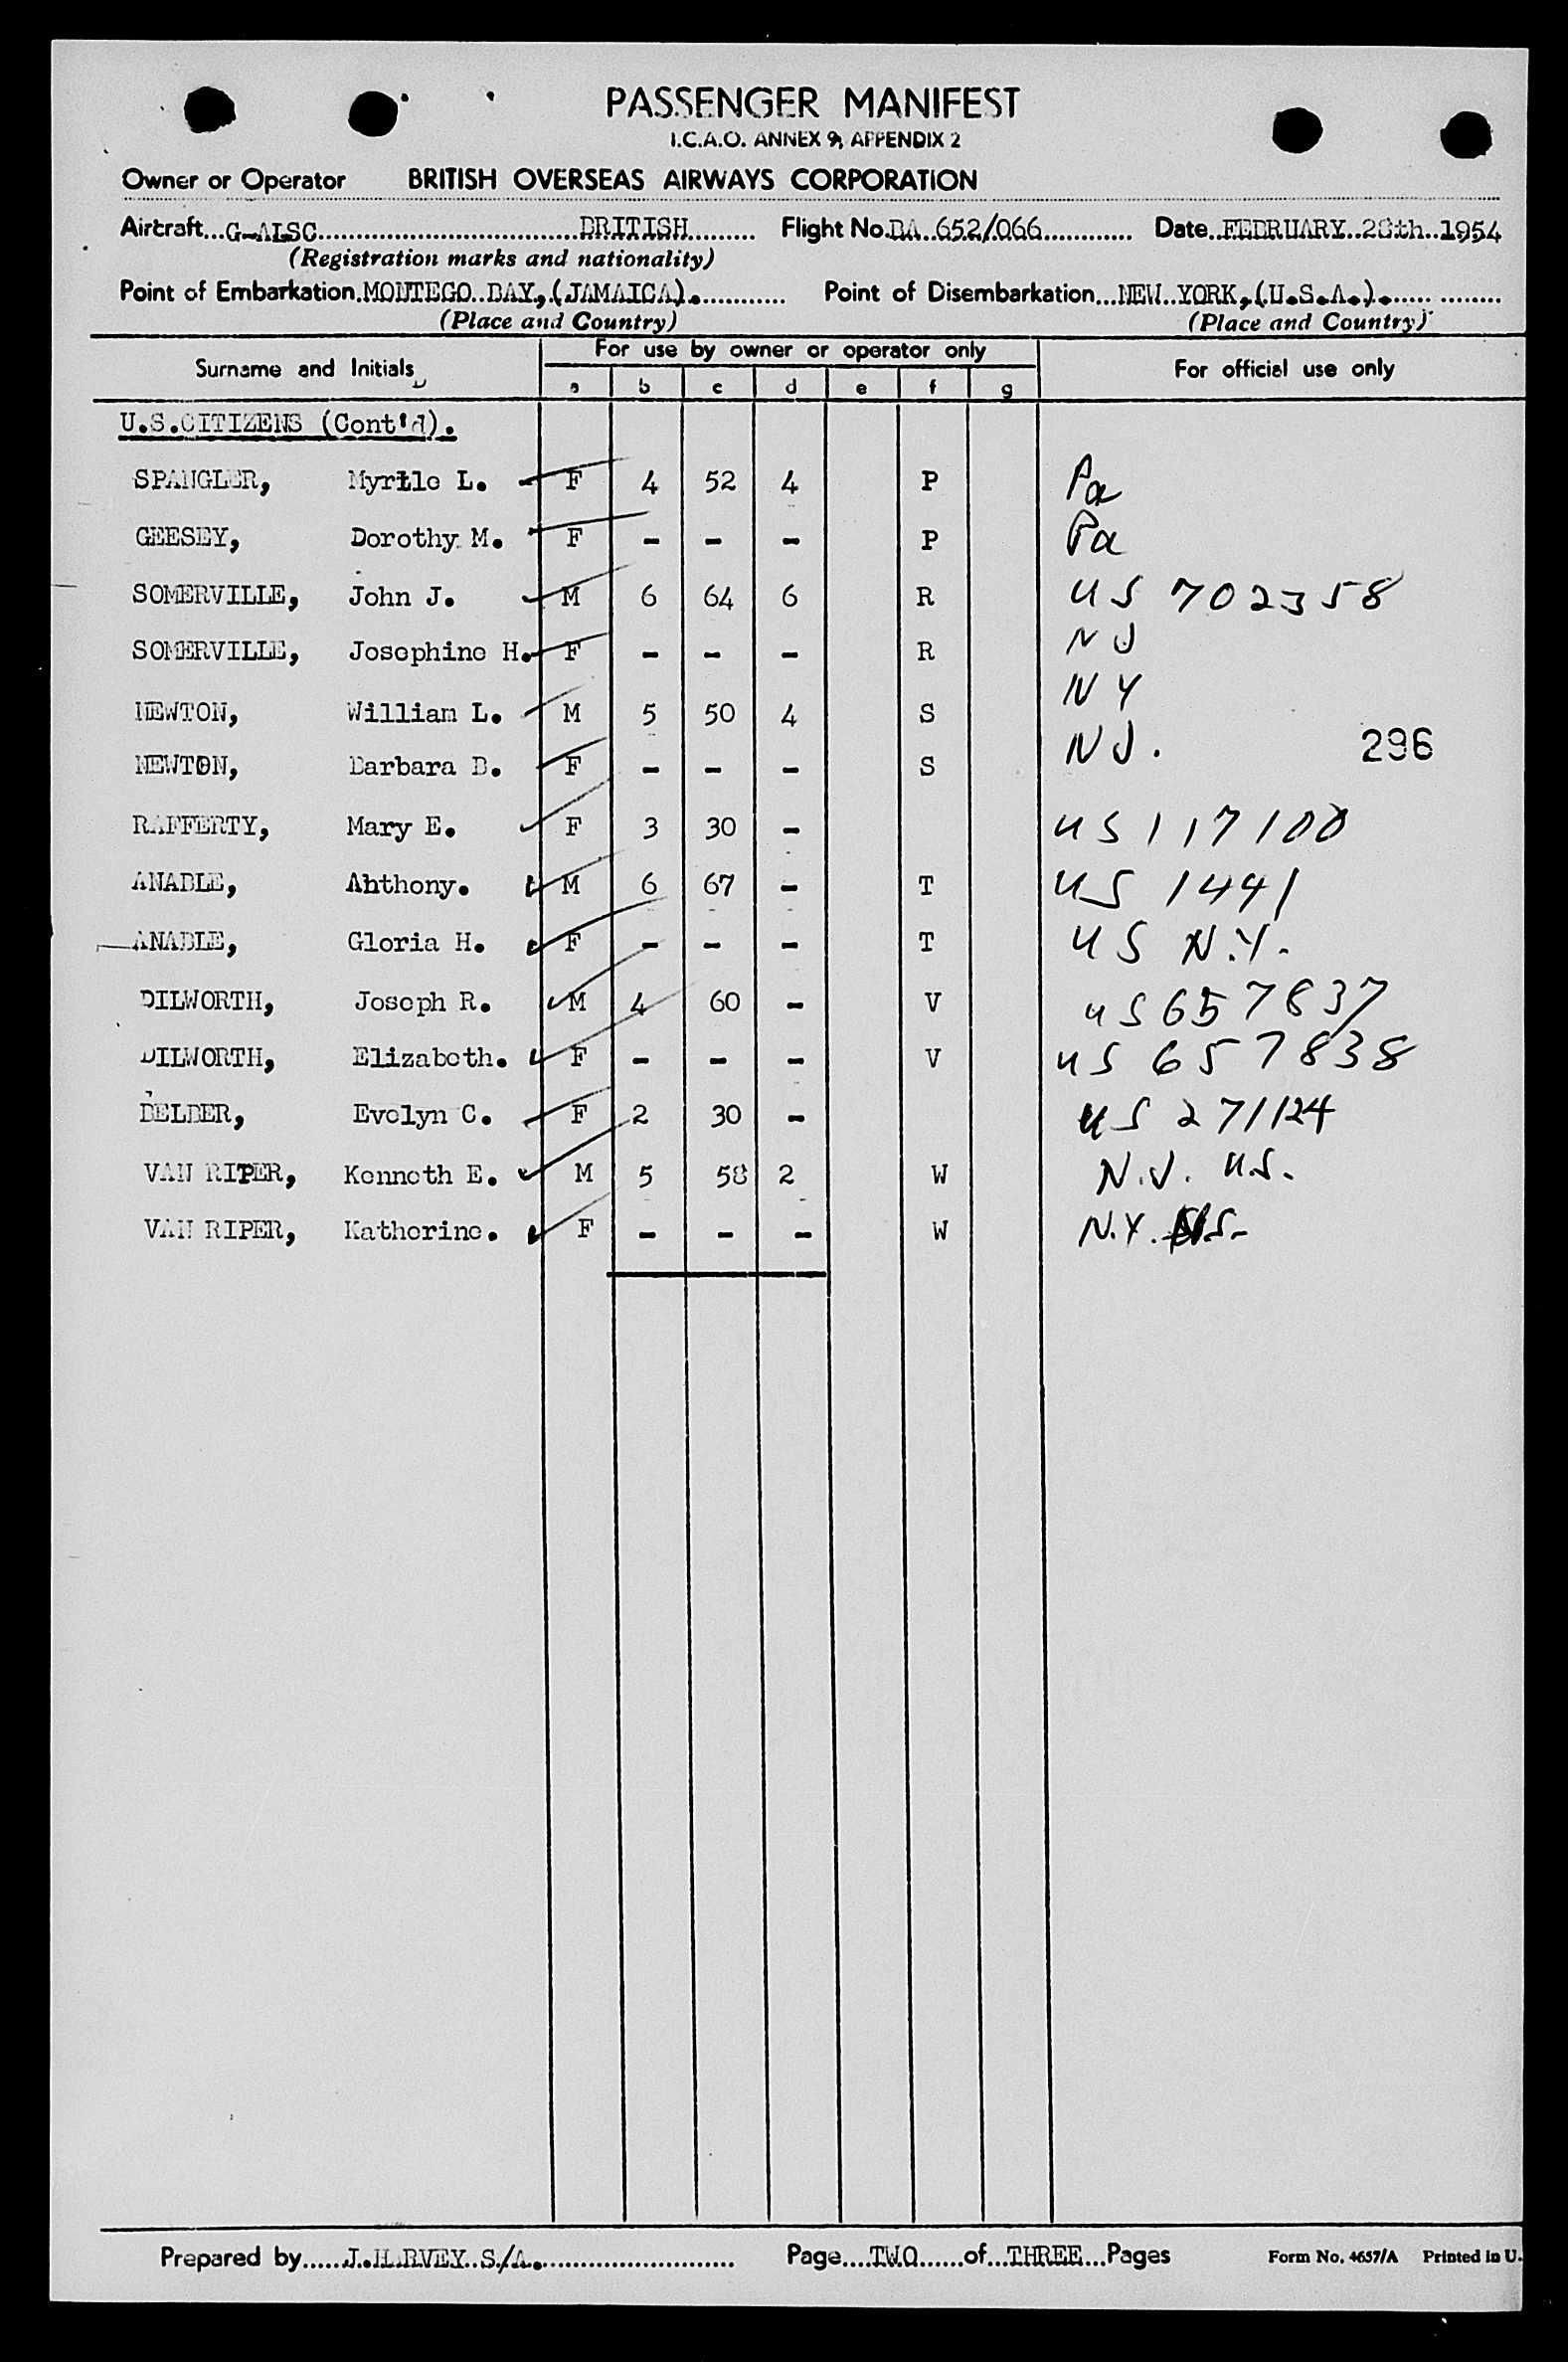 PASSENGER MANIFEST
I.C.A.O. ANNEX 9, APPENDIX 2
Owner or Operator BRITISH OVERSEAS AIRWAYS CORPORATION
Aircraft...G-ALSC...BRITISH... Flight No.BA..652/066... Date..FEBRUARY..28th..1954
(Registration marks and nationality)
Point of Embarkation.MONTEGO..BAY,.(JAMAICA)... Point of Disembarkation...NEW..YORK,.(U.S.A.)...
(Place and Country) (Place and Country)
For use by owner or operator only
Surname and Initials For official use only
a b c d e f g
U.S.CITIZENS (Cont'd).
SPANGLER, Myrtle L. F 4 52 4 P Pa
GEESEY, Dorothy M. F - - - P Pa
SOMERVILLE, John J. M 6 64 6 R US 702358
SOMERVILLE, Josephine H. F - - - R NJ
NEWTON, William L. M 5 50 4 S NY
NEWTON, Barbara B. F - - - S NJ. 296
RAFFERTY, Mary E. F 3 30 - US 117100
ANABLE, Ahthony. M 6 67 - T US 1441
ANABLE, Gloria H. F - - - T US N.Y.
DILWORTH, Joseph R. M 4 60 - V US 657837
DILWORTH, Elizabeth. F - - - V US 657838
BELBER, Evelyn C. F 2 30 - US 271124
VAN RIPER, Kenneth E. M 5 58 2 W N.J. U.S.
VAN RIPER, Katherine. F - - - W N.Y.
Prepared by......J.HARVEY..S/A.... Page....TWO......of...THREE...Pages Form No. 4657/A Printed in U.